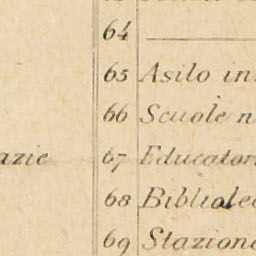 64
65 Asilo in
66 Scuole n
azie 67 Educator
68 Bibliotec
69 Stazione